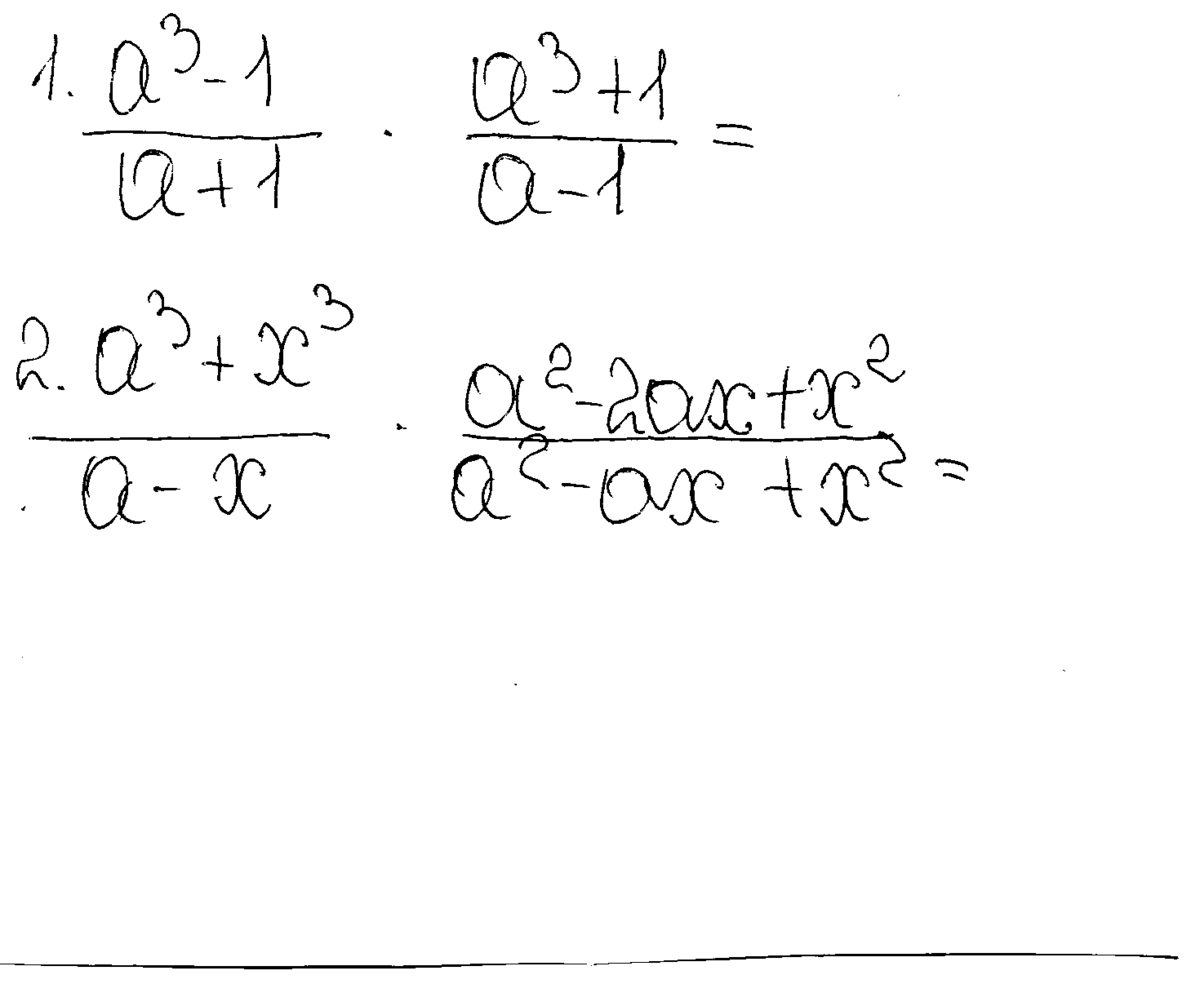 1. \frac{a^3-1}{a+1} \cdot \frac{a^3+1}{a-1} =
2. \frac{a^3+x^3}{a-x} \cdot \frac{a^2-2ax+x^2}{a^2-ax+x^2} =